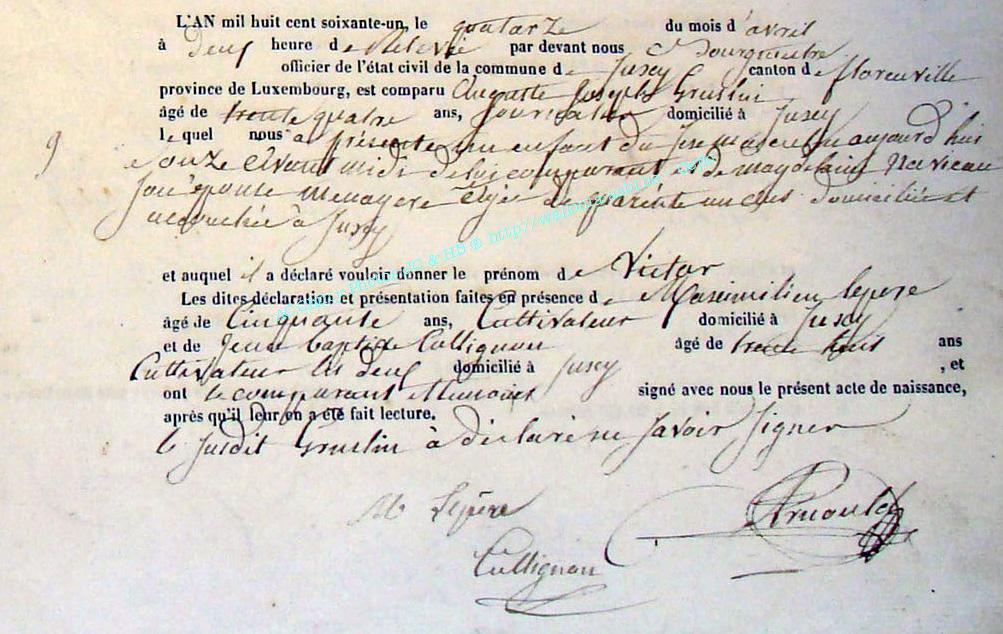 L'AN mil huit cent soixante-un, le quatorze du mois d'avril
à Deux heure de Relevée par devant nous
officier de l'état civil de la commune de Jusey canton de florenville
province de Luxembourg, est comparu Auguste Joseph Gruslin
âgé de trente quatre ans, Journalier domicilié à Jusey
9 le quel nous a présenté un enfant du sexe masculin aujourd huis
a onze Avant midi de lui comparant & de magdelaine Naiveau
son épouse menagere agée de quarente un ans domiciliée et
accouchée à Jusey
et auquel il a déclaré vouloir donner le prénom de Victor
Les dites déclaration et présentation faites en présence de Maximilien lepere
âgé de Cinquante ans, Cultivateur domicilié à Jusey
et de Jean baptiste Collignon âgé de trente huit ans
Cultivateur les deux domicilié à Jusey , et
ont le comparant signé avec nous le présent acte de naissance,
après qu'il leur en a été fait lecture.
le susdit Gruslin à déclaré ne savoir signer
M Lepère
Collignon